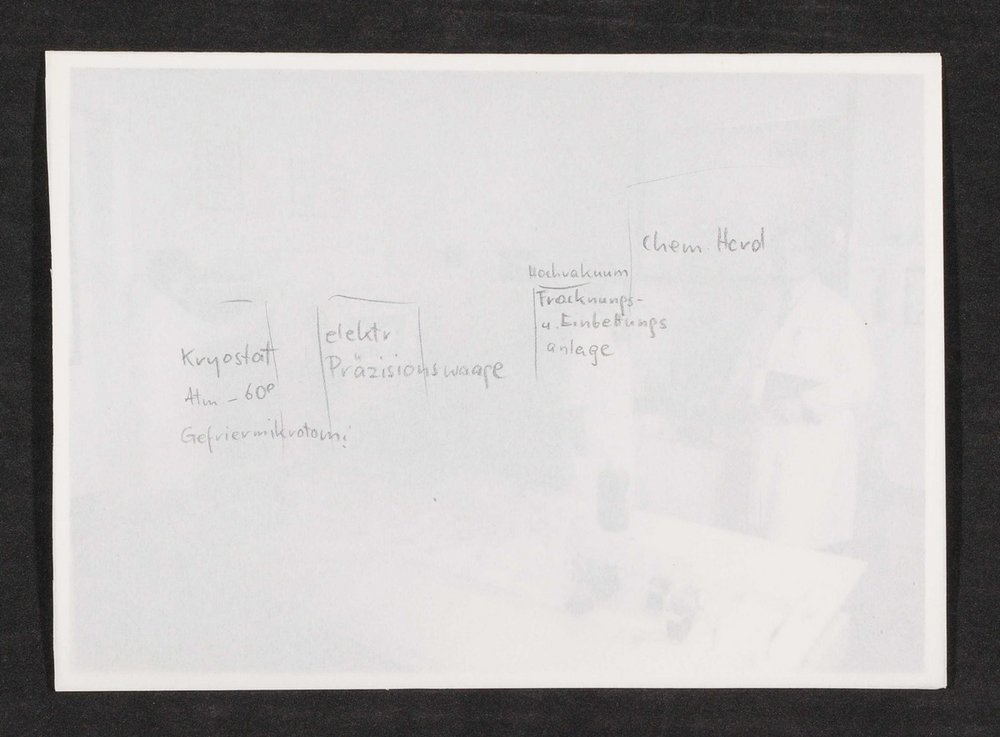 Kryostat
Atm - 60°
Gefriermikrotom!
elektr
Präzisionswaage
Hochvakuum
Trocknungs-
u. Einbettungs
anlage
Chem. Herd